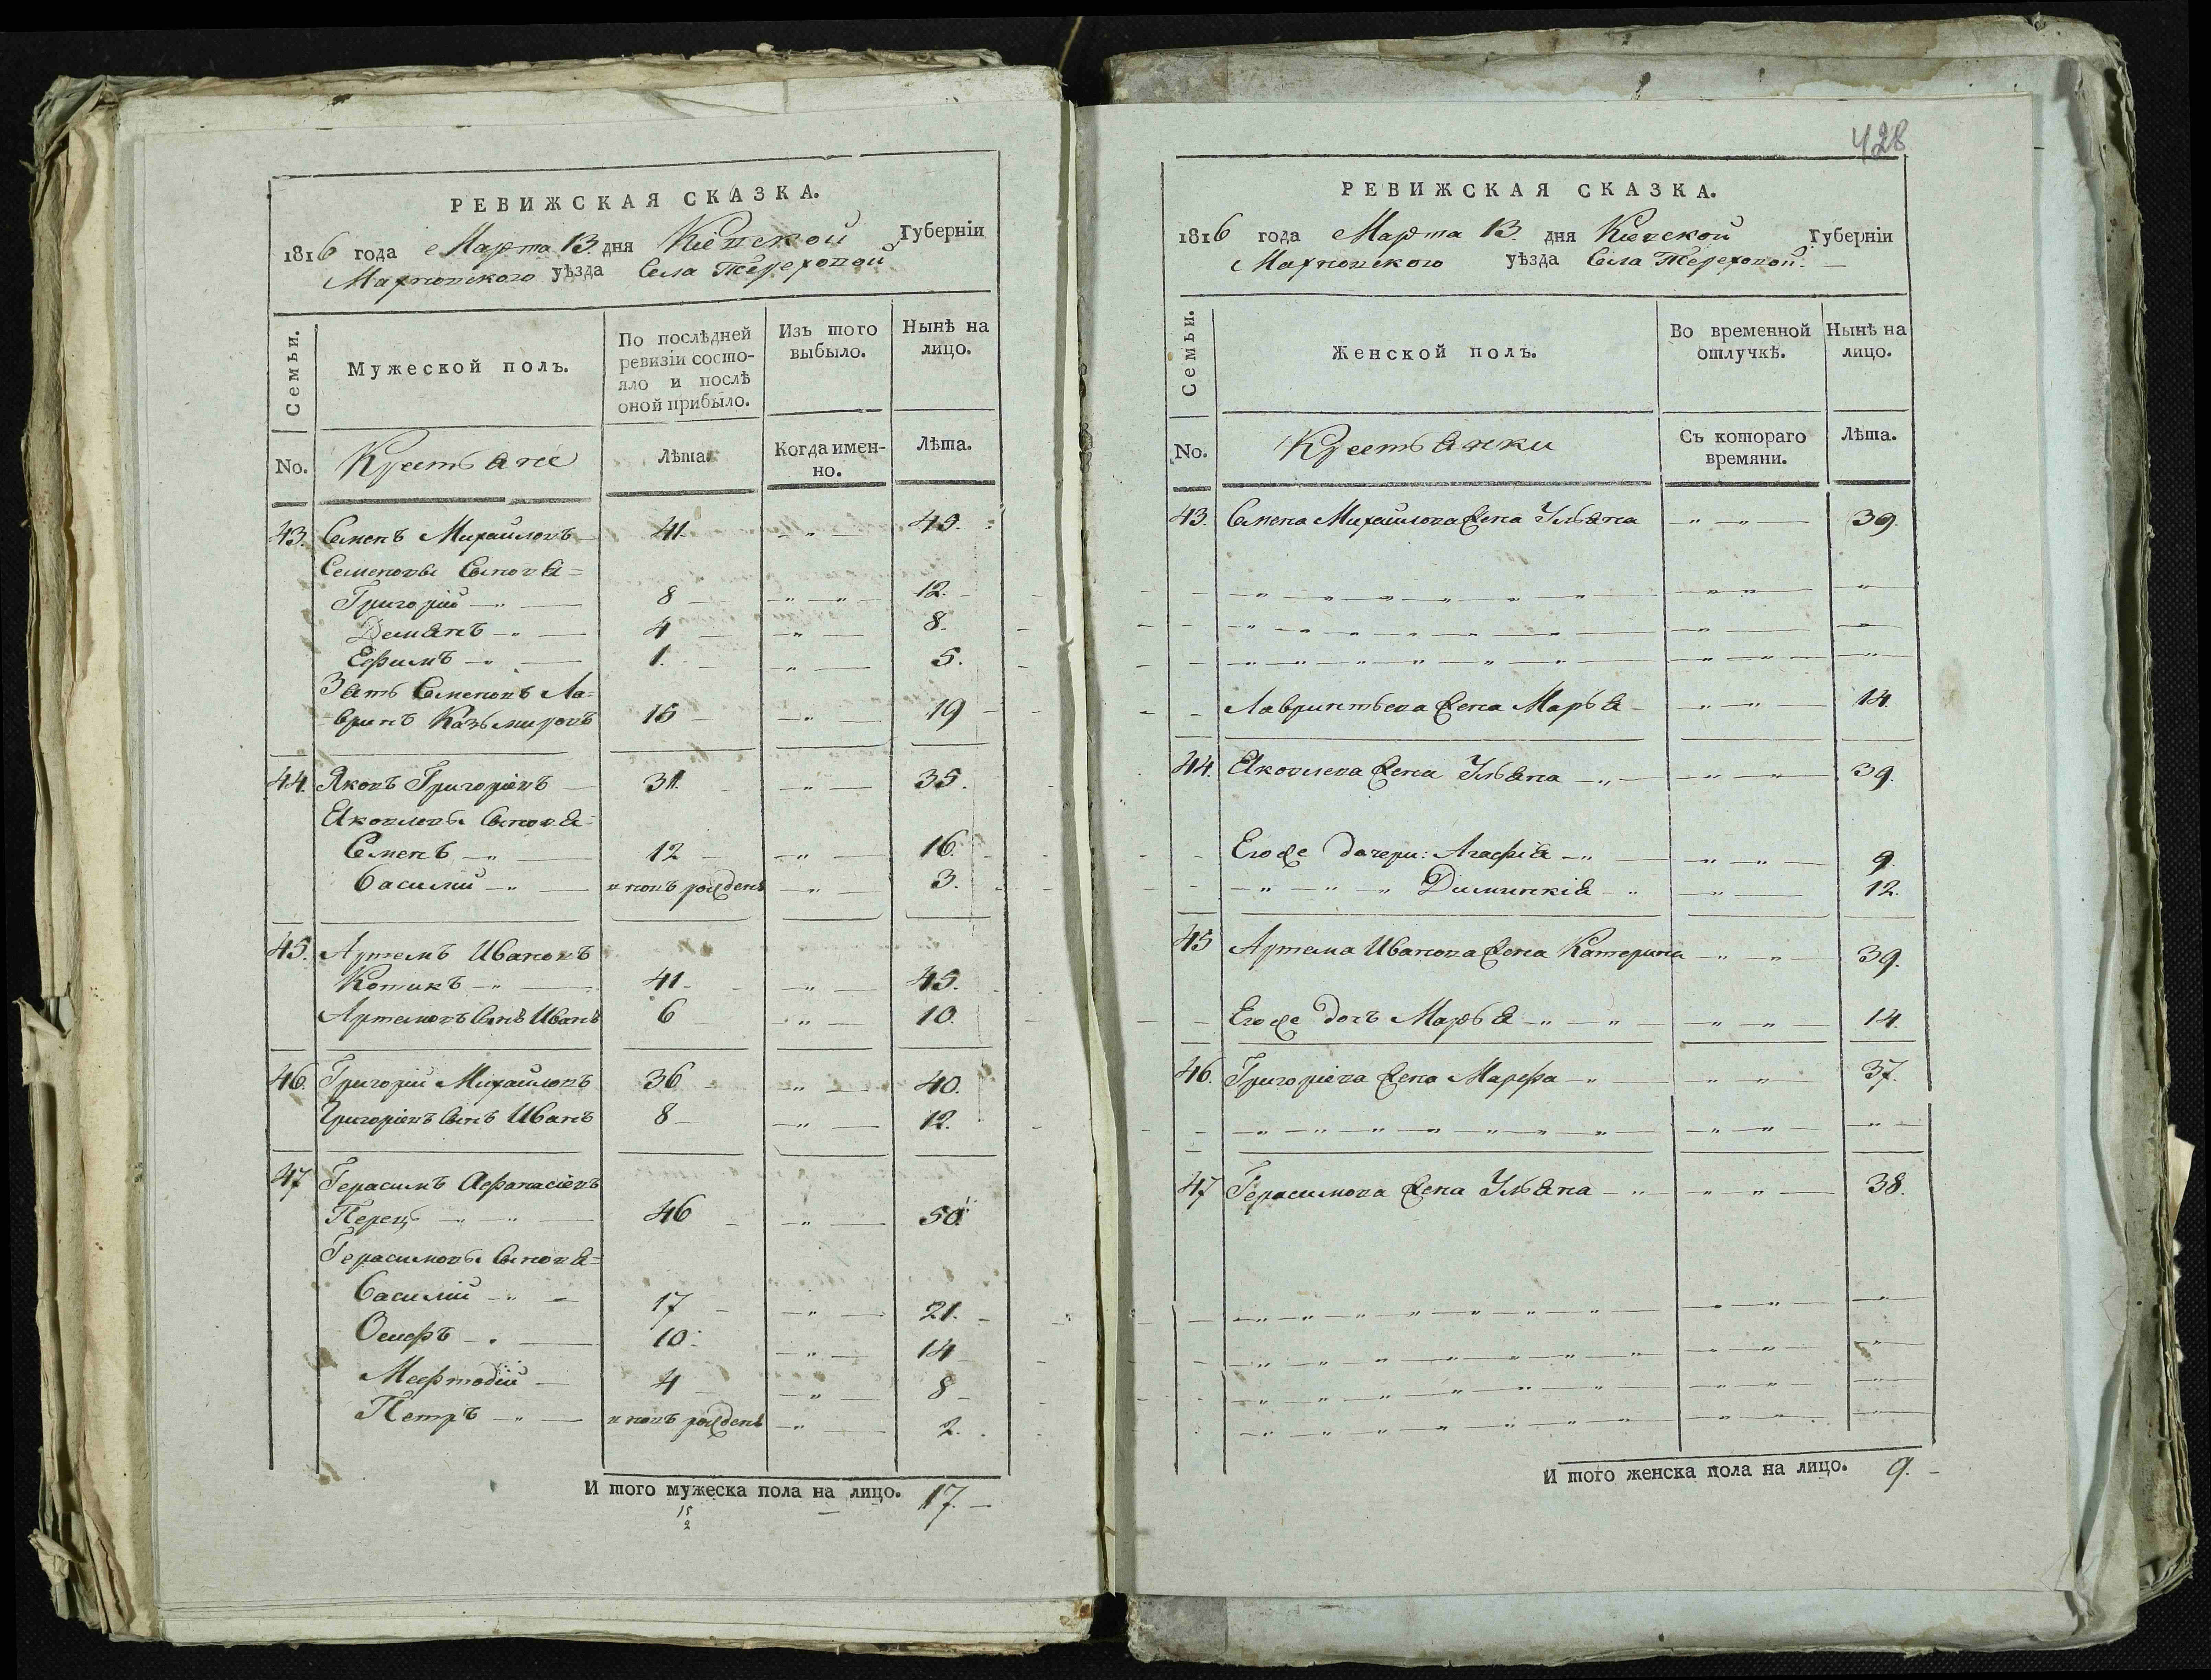 РЕВИЖСКАЯ СКАЗКА.
1816 года Марта 13. дня Кіевской Губерніи
Махновского уѣзда Села Терехової
Семьи.
Мужеской полъ.
По послѣдней ревизіи состояло и послѣ оной прибыло.
Изъ того выбыло.
Нынѣ на лицо.
No.
Крестьяне
Лѣта.
Когда именно.
Лѣта.
43. Семенъ Михайловъ 41. 45.
Семеновы Сыновя
Григорій 8 12.
Демянъ 4 8.
Ефимъ 1. 5.
Зять Семеновъ Ла-
вринъ Казьмировъ 15 19
44. Яковъ Григоріевъ 31. 35.
Яковлевы Сыновя
Семенъ 12 16.
Василій вновъ рожденъ 3.
45. Артемъ Ивановъ
Котикъ 41 45.
Артемовъ Сынъ Иванъ 6 10.
46. Григорій Михайловъ 36 40.
Григоріевъ Сынъ Иванъ 8 12.
47 Герасимъ Афанасіевъ
Перецъ 46 50.
Герасимовы Сыновя
Василій 17 21.
Осифъ 10. 14
Мефтодій 4 8
Петръ вновъ рожденъ 2.
И того мужеска пола на лицо. 17.
15
2
428
РЕВИЖСКАЯ СКАЗКА.
1816 года Марта 13. дня Кіевской Губерніи
Махновского уѣзда Села Терехової.
Семьи.
Женской полъ.
Во временной отлучкѣ.
Нынѣ на лицо.
No.
Крестьянки
Съ котораго времяни.
Лѣта.
43. Семена Михайлова жена Ульяна 39.
Лавринтьева жена Марья 14.
44. Яковлева жена Ульяна 39.
Егоже дочери: Агафія 9.
Диминкія 12.
45 Артема Иванова жена Катерина 39.
Егоже дочь Марья 14.
46. Григоріева жена Марфа 37.
47 Герасимова жена Ульяна 38.
И того женска пола на лицо. 9.